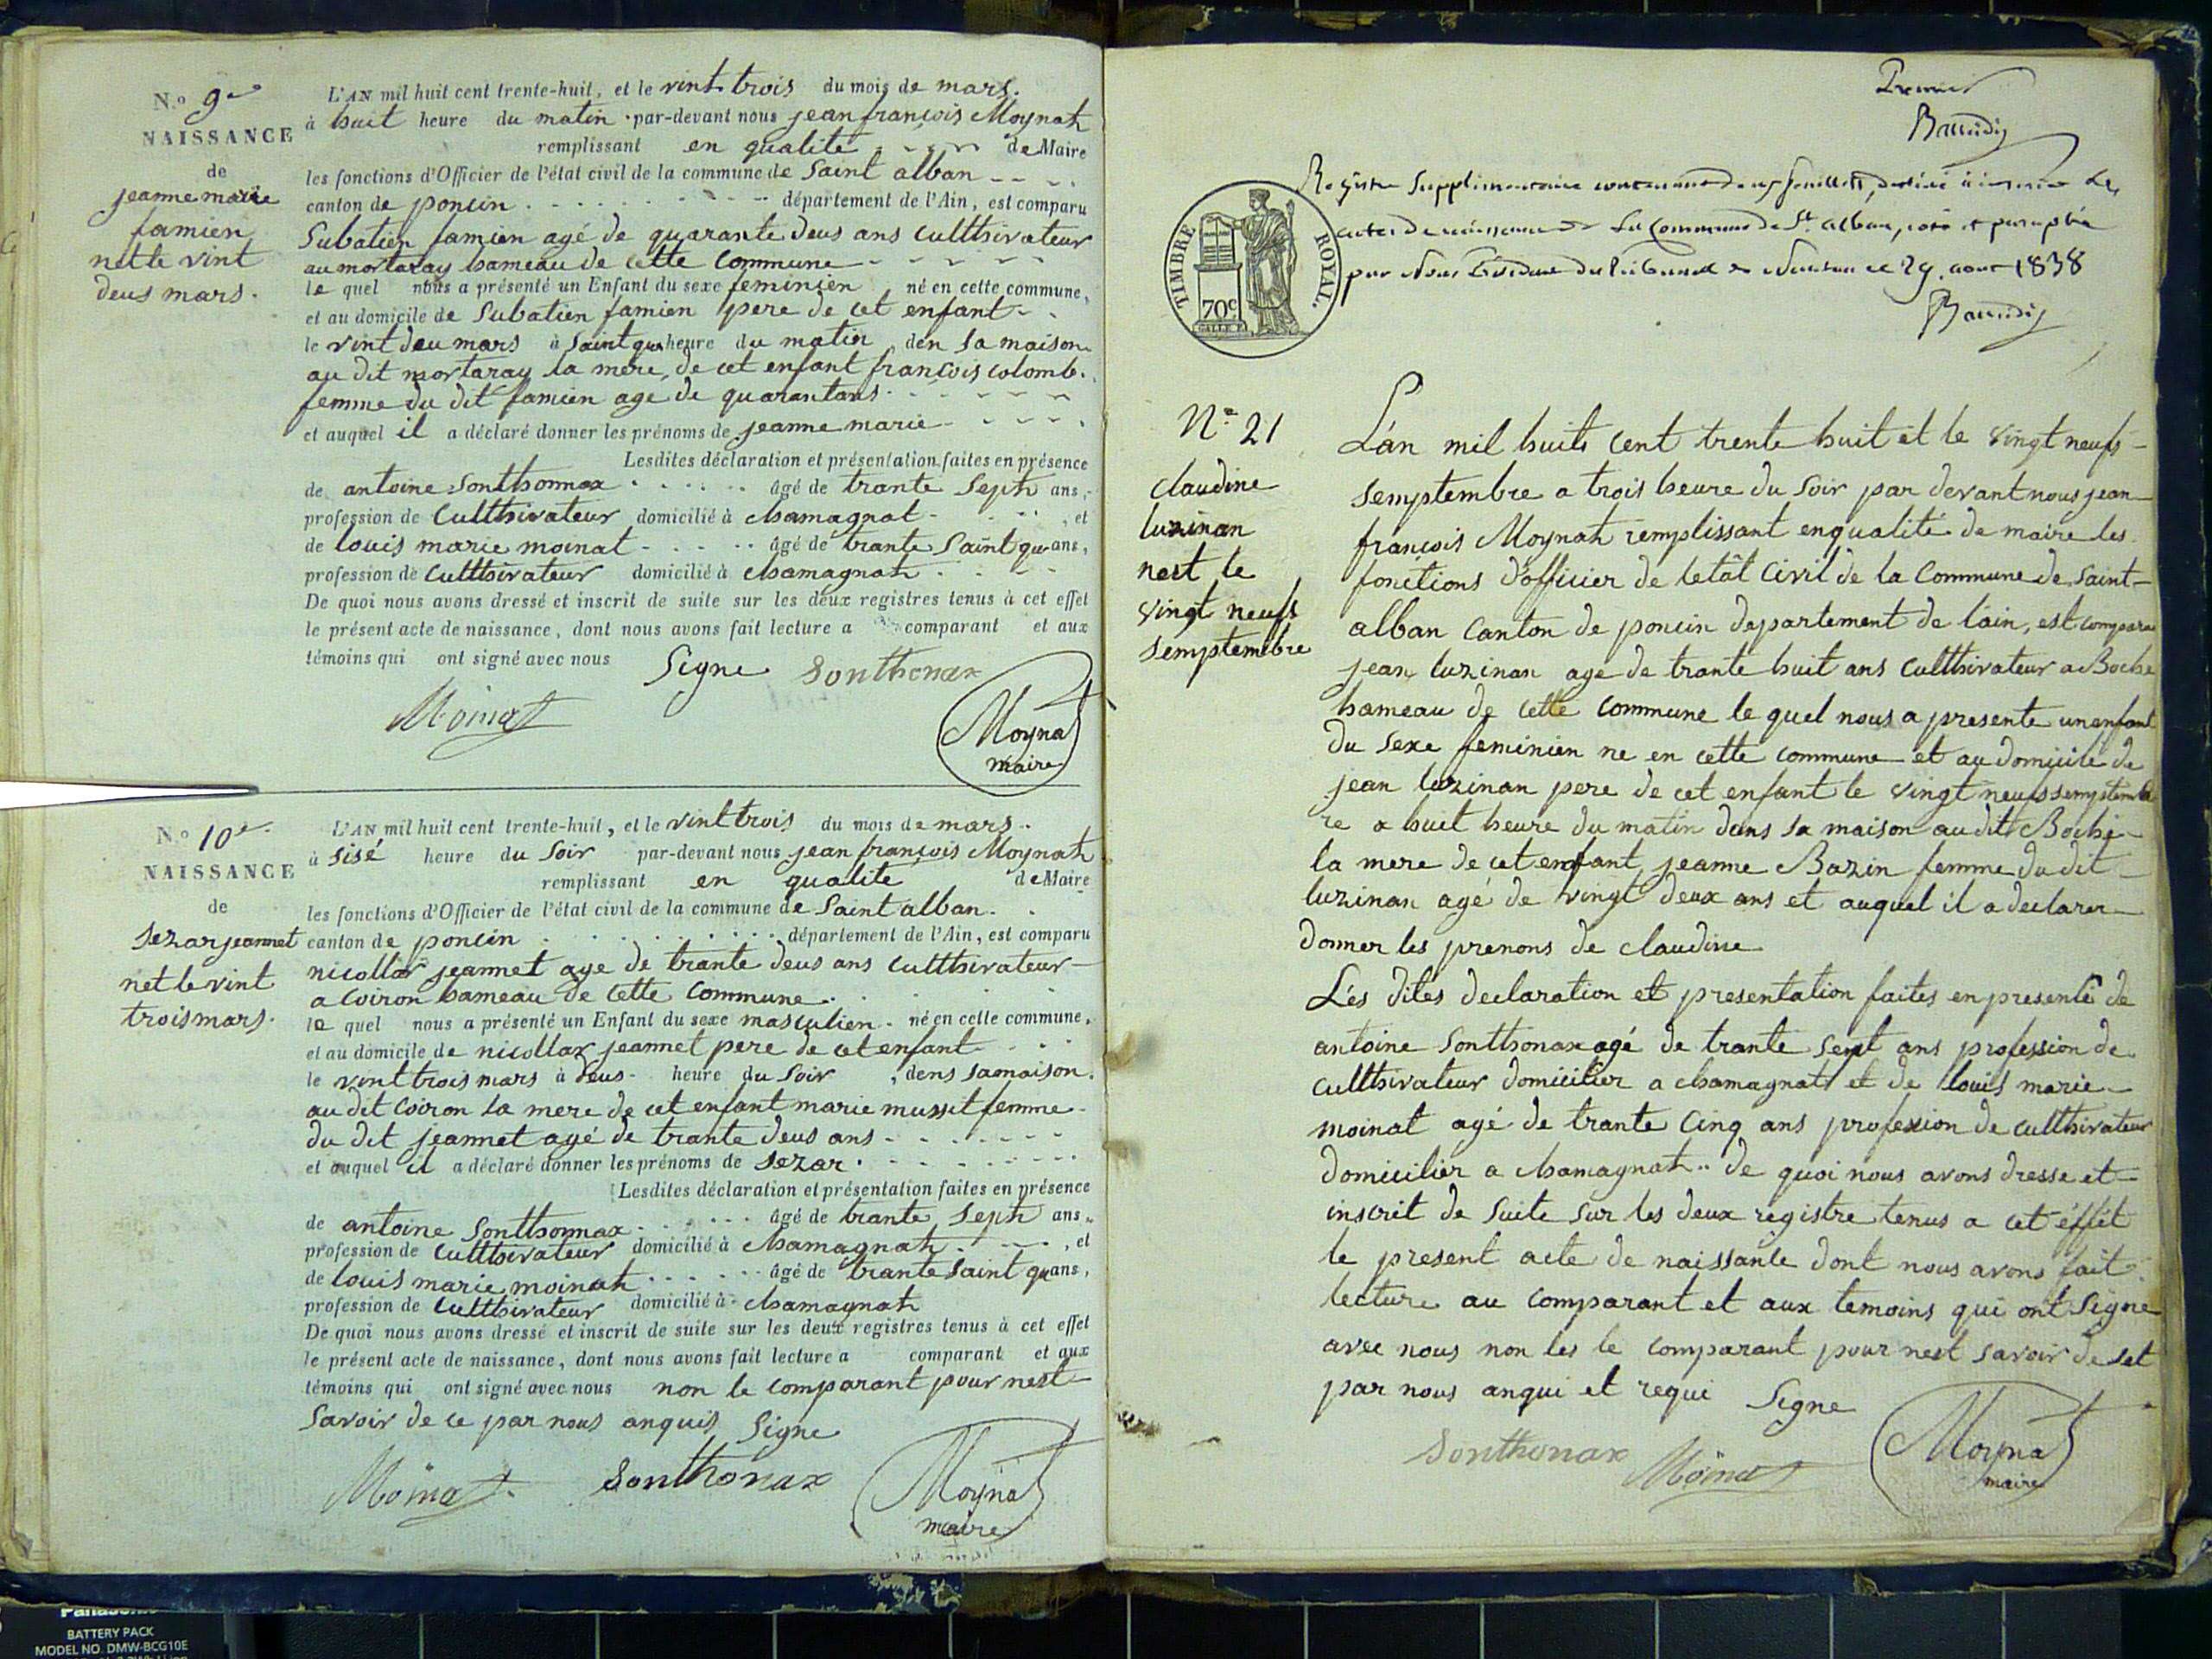 N.o 9e
NAISSANCE
de
jeanne marie
famien
net le vint
deus mars.
L'AN mil huit cent trente-huit, et le vint trois du mois de mars.
à huit heure du matin par-devant nous jean françois Moynat
remplissant en qualité de Maire
les fonctions d'Officier de l'état civil de la commune de Saint alban
canton de poncin département de l'Ain, est comparu
Subatien famien agé de quarante deus ans culthivateur
au mortaray hameau de cette commune
le quel nous a présenté un Enfant du sexe feminien né en cette commune,
et au domicile de Subatien famien pere de cet enfant
le vint deu mars à Saint que heure du matin den sa maison
au dit mortaray la mere de cet enfant francois colomb.
femme du dit famien age de quarantans
et auquel il a déclaré donner les prénoms de jeanne marie
Lesdites déclaration et présentation faites en présence
de antoine Sontthonnax âgé de trante Septh ans,
profession de Culthivateur domicilié à chamagnat , et
de louis marie moinat âgé de trante Saint que ans,
profession de Culthivateur domicilié à chamagnat
De quoi nous avons dressé et inscrit de suite sur les deux registres tenus à cet effet
le présent acte de naissance, dont nous avons fait lecture a comparant et aux
témoins qui ont signé avec nous Signe Sonthonax
Moinat
Moynat
maire
N.o 10e
NAISSANCE
de
Sezar jeannet
net le vint
trois mars.
L'AN mil huit cent trente-huit, et le vint trois du mois de mars
à sisé heure du Soir par-devant nous jean françois Moynat
remplissant en qualite de Maire
les fonctions d'Officier de l'état civil de la commune de Saint alban.
canton de poncin département de l'Ain, est comparu
nicollar jeannet age de trante deus ans culthivateur
a Coiron hameau de cette commune.
le quel nous a présenté un Enfant du sexe masculien né en cette commune,
et au domicile de nicollar jeannet pere de cet enfant
le vint trois mars à deus heure du Soir , dens sa maison.
au dit Coiron la mere de cet enfant marie musset femme
du dit jeannet agé de trante deus ans
et auquel il a déclaré donner les prénoms de Sezar
Lesdites déclaration et présentation faites en présence
de antoine Sontthonnax âgé de trante Septh ans,
profession de Culthivateur domicilié à chamagnat , et
de louis marie moinat âgé de trante saint que ans,
profession de Culthivateur domicilié à chamagnat
De quoi nous avons dressé et inscrit de suite sur les deux registres tenus à cet effet
le présent acte de naissance, dont nous avons fait lecture a comparant et aux
témoins qui ont signé avec nous non le comparant pour nest
Savoir de ce par nous anquis Signe
Moinat Sonthonax Moynat
maire
Premier
Baudin
Registre Supplimentaire contenant deux feuillets, destiné à inscrire les
actes de naissance de La Commune de St. alban, coté et paraphé
par Nous President du Tribunal de Nantua ce 29 aout 1838
Baudin
TIMBRE ROYAL.
70c
N° 21
claudine
luzinan
nest le
vingt neufs
semptembre
L'an mil huits cent trente huit et le vingt neufs
semptembre a trois heure du Soir par devant nous jean
françois Moynat remplissant en qualité de maire les
fonctions d'officier de letât Civil de la Commune de Saint
alban Canton de poncin departement de lain, est comparu
jean luzinan age de trante huit ans culthivateur a Boche
hameau de cette commune le quel nous a presente un enfant
du sexe feminien ne en cette commune et au domicile de
jean luzinan pere de cet enfant le vingt neufs semptemb
re a huit heure du matin dans sa maison au dit Boche
la mere de cet enfant jeanne Bazin femme du dit
luzinan agé de vingt deux ans et auquel il a declarer
donner les prenons de claudine
Lés dites declaration et presentation faites en presente de
antoine Sontthonax agé de trante Sept ans profession de
culthivateur domicilier a chamagnat et de louis marie
moinat agé de trante Cinq ans profession de culthivateur
domicilier a chamagnat de quoi nous avons dresse et
inscrit de suite sur les deux registre tenus a cet éffét
le present acte de naissante dont nous avons fait
lecture au comparant et aux temoins qui ont Signe
avec nous non les le comparant pour nest savoir de set
par nous anqui et requi Signe
Sonthonax Moinat Moynat
maire
Panasonic
BATTERY PACK
MODEL NO. DMW-BCG10E